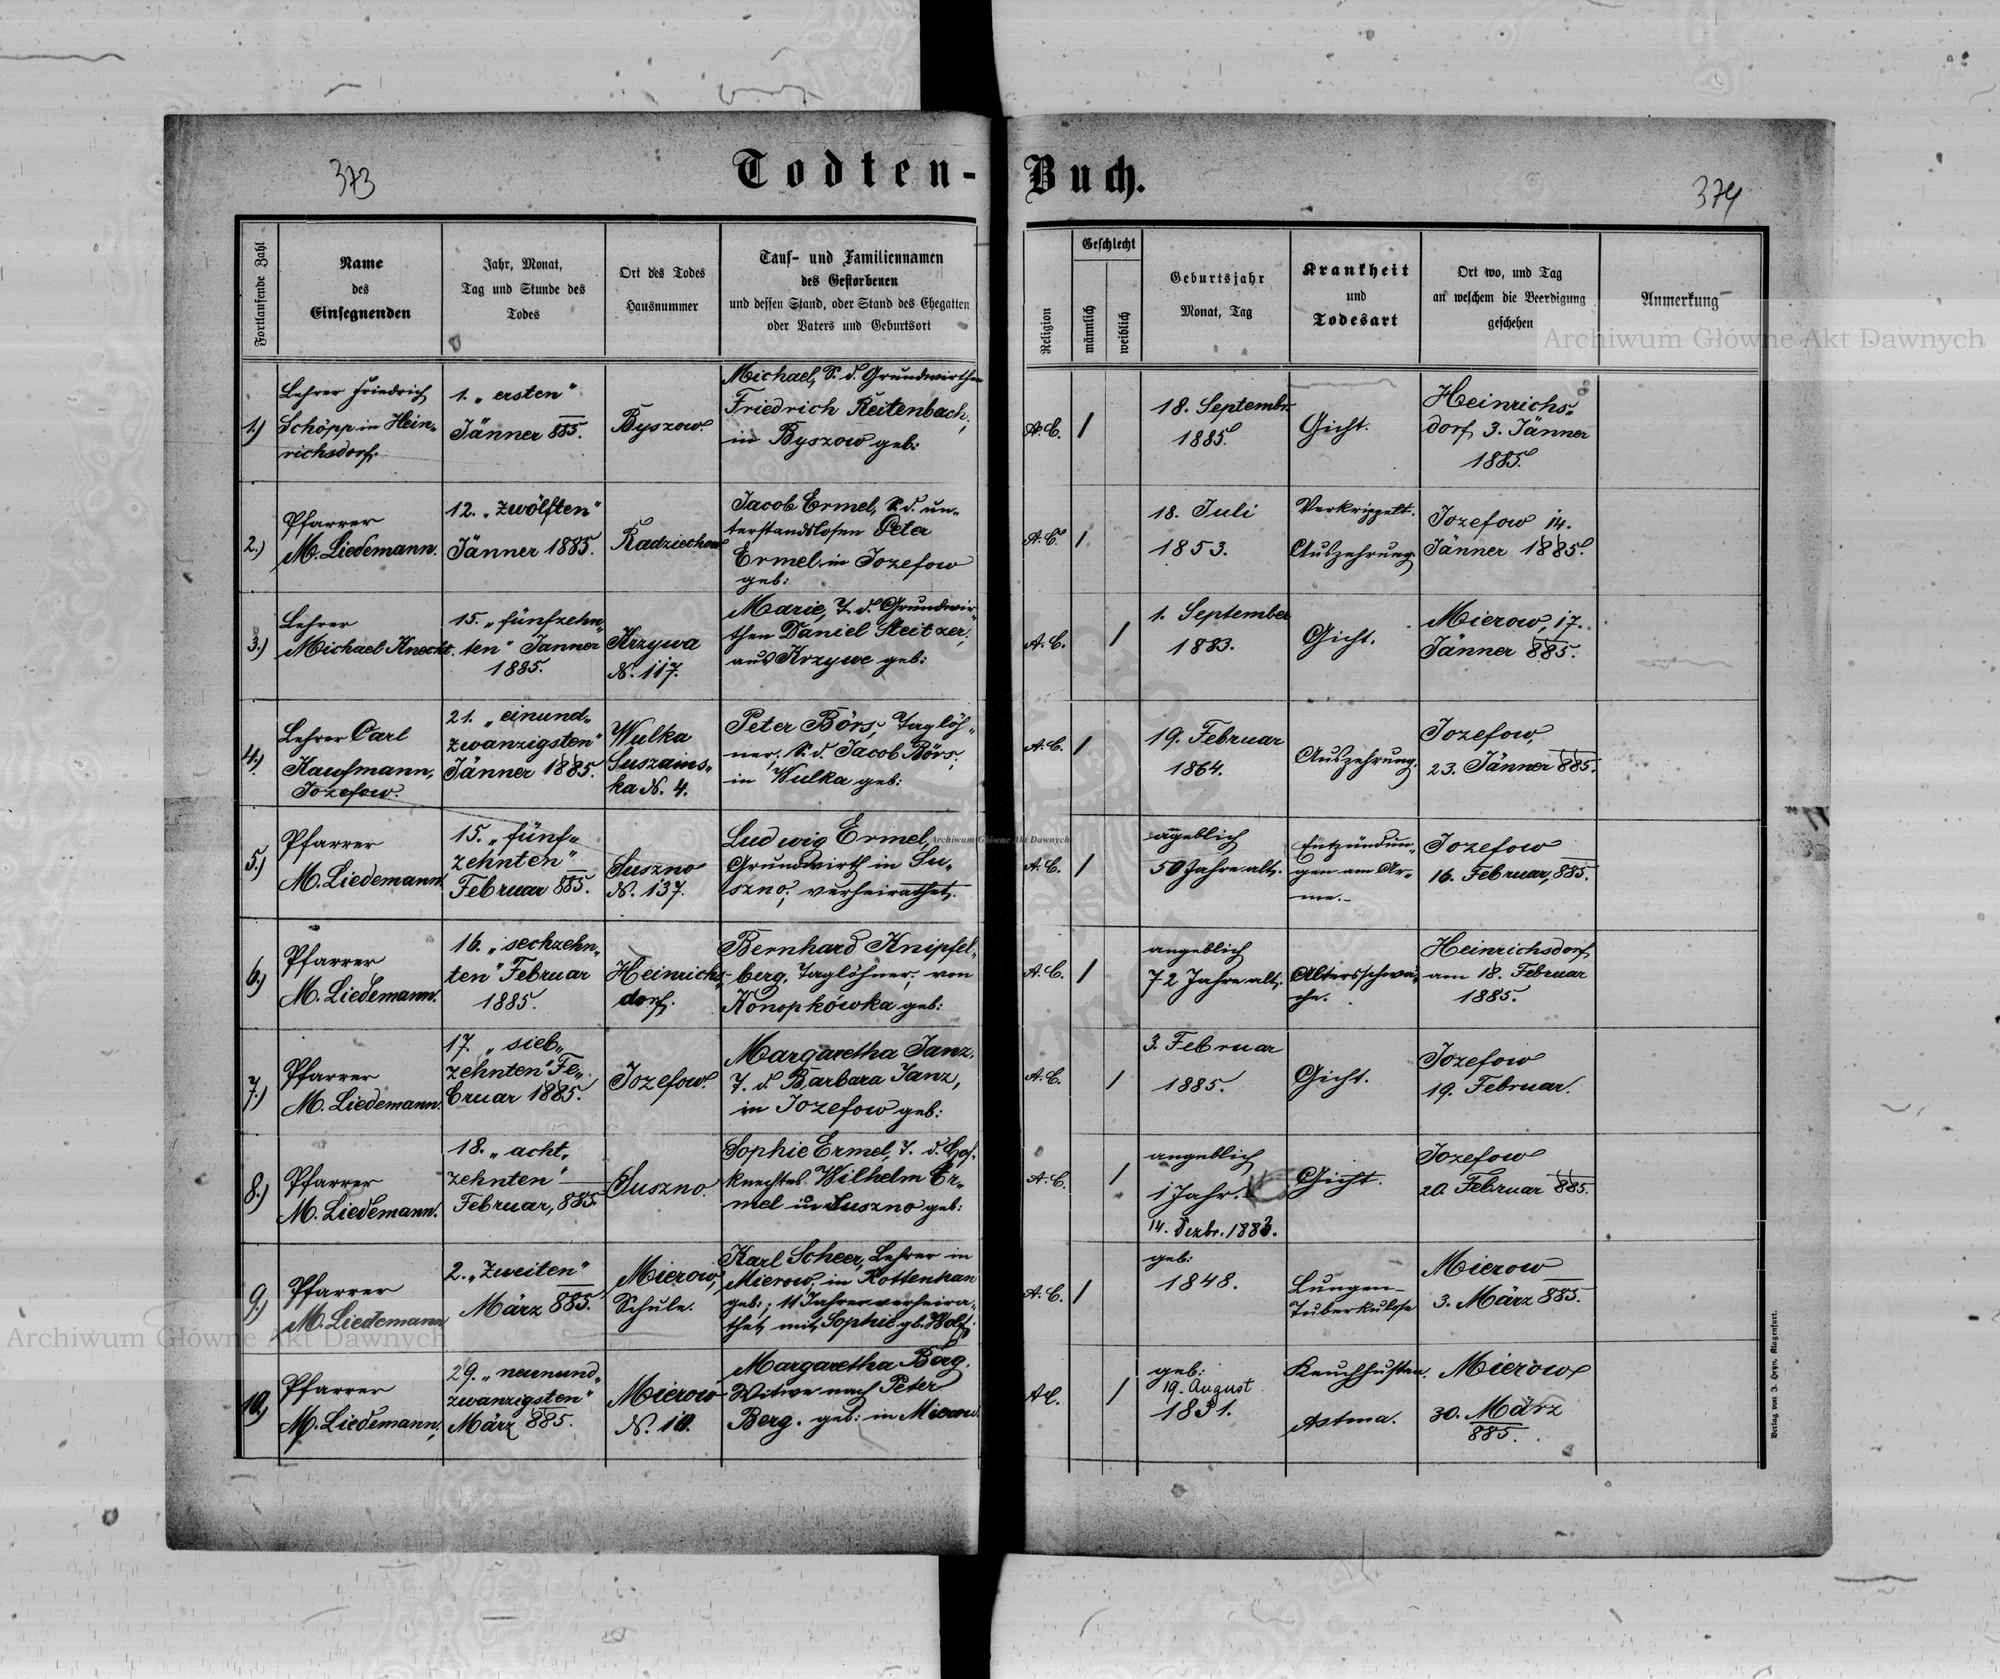 373
Todten-
Buch.
374
Fortlaufende Zahl
Name
des
Einsegnenden
Jahr, Monat,
Tag und Stunde des
Todes
Ort des Todes
Hausnummer
Tauf- und Familiennamen
des Gestorbenen
und dessen Stand, oder Stand des Ehegatten
oder Vaters und Geburtsort
Religion
Geschlecht
männlich
weiblich
Geburtsjahr
Monat, Tag
Krankheit
und
Todesart
Ort wo, und Tag
an welchem die Beerdigung
geschehen
Anmerkung
1.)
Lehrer Friedrich
Schöpp in Hein-
richsdorf.
1. „ersten“
Jänner 885.
Byszow.
Michael, S. d. Grundwirthen
Friedrich Reitenbach,
in Byszow geb:
A. C.
/
18. Septembr.
1885.
Gicht.
Heinrichs-
dorf, 3. Jänner
1885.
2.)
Pfarrer
M. Liedemann.
12. „zwölften“
Jänner 1885.
Radziechow
Jacob Ermel, S. d. un-
terstandslosen Peter
Ermel in Jozefow
geb:
A. C.
/
18. Juli
1853.
Verkrippelt.
Auszehrung.
Jozefow 14.
Jänner 1885.
3.)
Lehrer
Michael Knecht.
15. „fünfzehn-
ten“ Janner
1885.
Krzywa
N. 117.
Marie, T. d. Grundwir-
then Daniel Steitzer,
aus Krzywe geb:
A. C.
/
1. September
1883.
Gicht.
Mierow, 17.
Jänner 885.
4.)
Lehrer Carl
Kaufmann,
Jozefow.
21. „einund-
zwanzigsten“
Jänner 1885.
Wulka
Suszains-
ka N. 4.
Peter Börs, Taglöh-
ner, S. d. Jacob Börs,
in Wulka geb:
A. C.
/
19. Februar
1864.
Auszehrung.
Jozefow,
23. Jänner 885.
5.)
Pfarrer
M. Liedemann.
15. „fünf-
zehnten“
Februar 885.
Suszno
N. 137.
Ludwig Ermel,
Grundwirth in Su-
szno, verheirathet.
A. C.
/
angeblich
50 Jahre alt.
Entzündun-
gen am Ar-
me.-
Jozefow
16. Februar, 885.
6.)
Pfarrer
M. Liedemann.
16. „sechzehn-
ten“ Februar
1885.
Heinrichs-
dorf.
Bernhard Knipfel-
berg, Taglöhner, von
Konopkówka geb:
A. C.
/
angeblich
72 Jahre alt.
Altersschwä-
che.
Heinrichsdorf
am 18. Februar
1885.
7.)
Pfarrer
M. Liedemann.
17. „sieb-
zehnten“ Fe-
bruar 1885.
Jozefow.
Margaretha Janz,
T. d. Barbara Janz,
in Jozefow geb:
A. C.
/
3. Februar
1885.
Gicht.
Jozefow
19. Februar.
8.)
Pfarrer
M. Liedemann.
18. „acht-
zehnten“
Februar, 885.
Suszno.
Sophie Ermel, T. d. Hof-
knechtes Wilhelm Er-
mel in Suszno geb:
A. C.
/
angeblich
1 Jahr.
14. Dezbr. 1883.
Gicht.
Jozefow
20. Februar 885.
9.)
Pfarrer
M. Liedemann
2. „zweiten“
März 885.
Mierow,
Schule.
Karl Scheer, Lehrer in
Mierow, in Rottenhan
geb:, 11 Jahre verheira-
thet mit Sophie gb. Wolf.
A. C.
/
geb:
1848.
Lungen-
Tuberkulose
Mierow
3. März 885.
10.)
Pfarrer
M. Liedemann.
29. „neunund-
zwanzigsten“
März 885.
Mierow
N. 10.
Margaretha Berg,
Witwe nach Peter
Berg. geb: in Mierow
A. C.
/
geb:
19. August
1831.
Keuchhusten.
Astma.
Mierow
30. März
885.
Verlag von J. Heyn, Klagenfurt.
Archiwum Główne Akt Dawnych
Archiwum Główne Akt Dawnych
Archiwum Główne Akt Dawnych